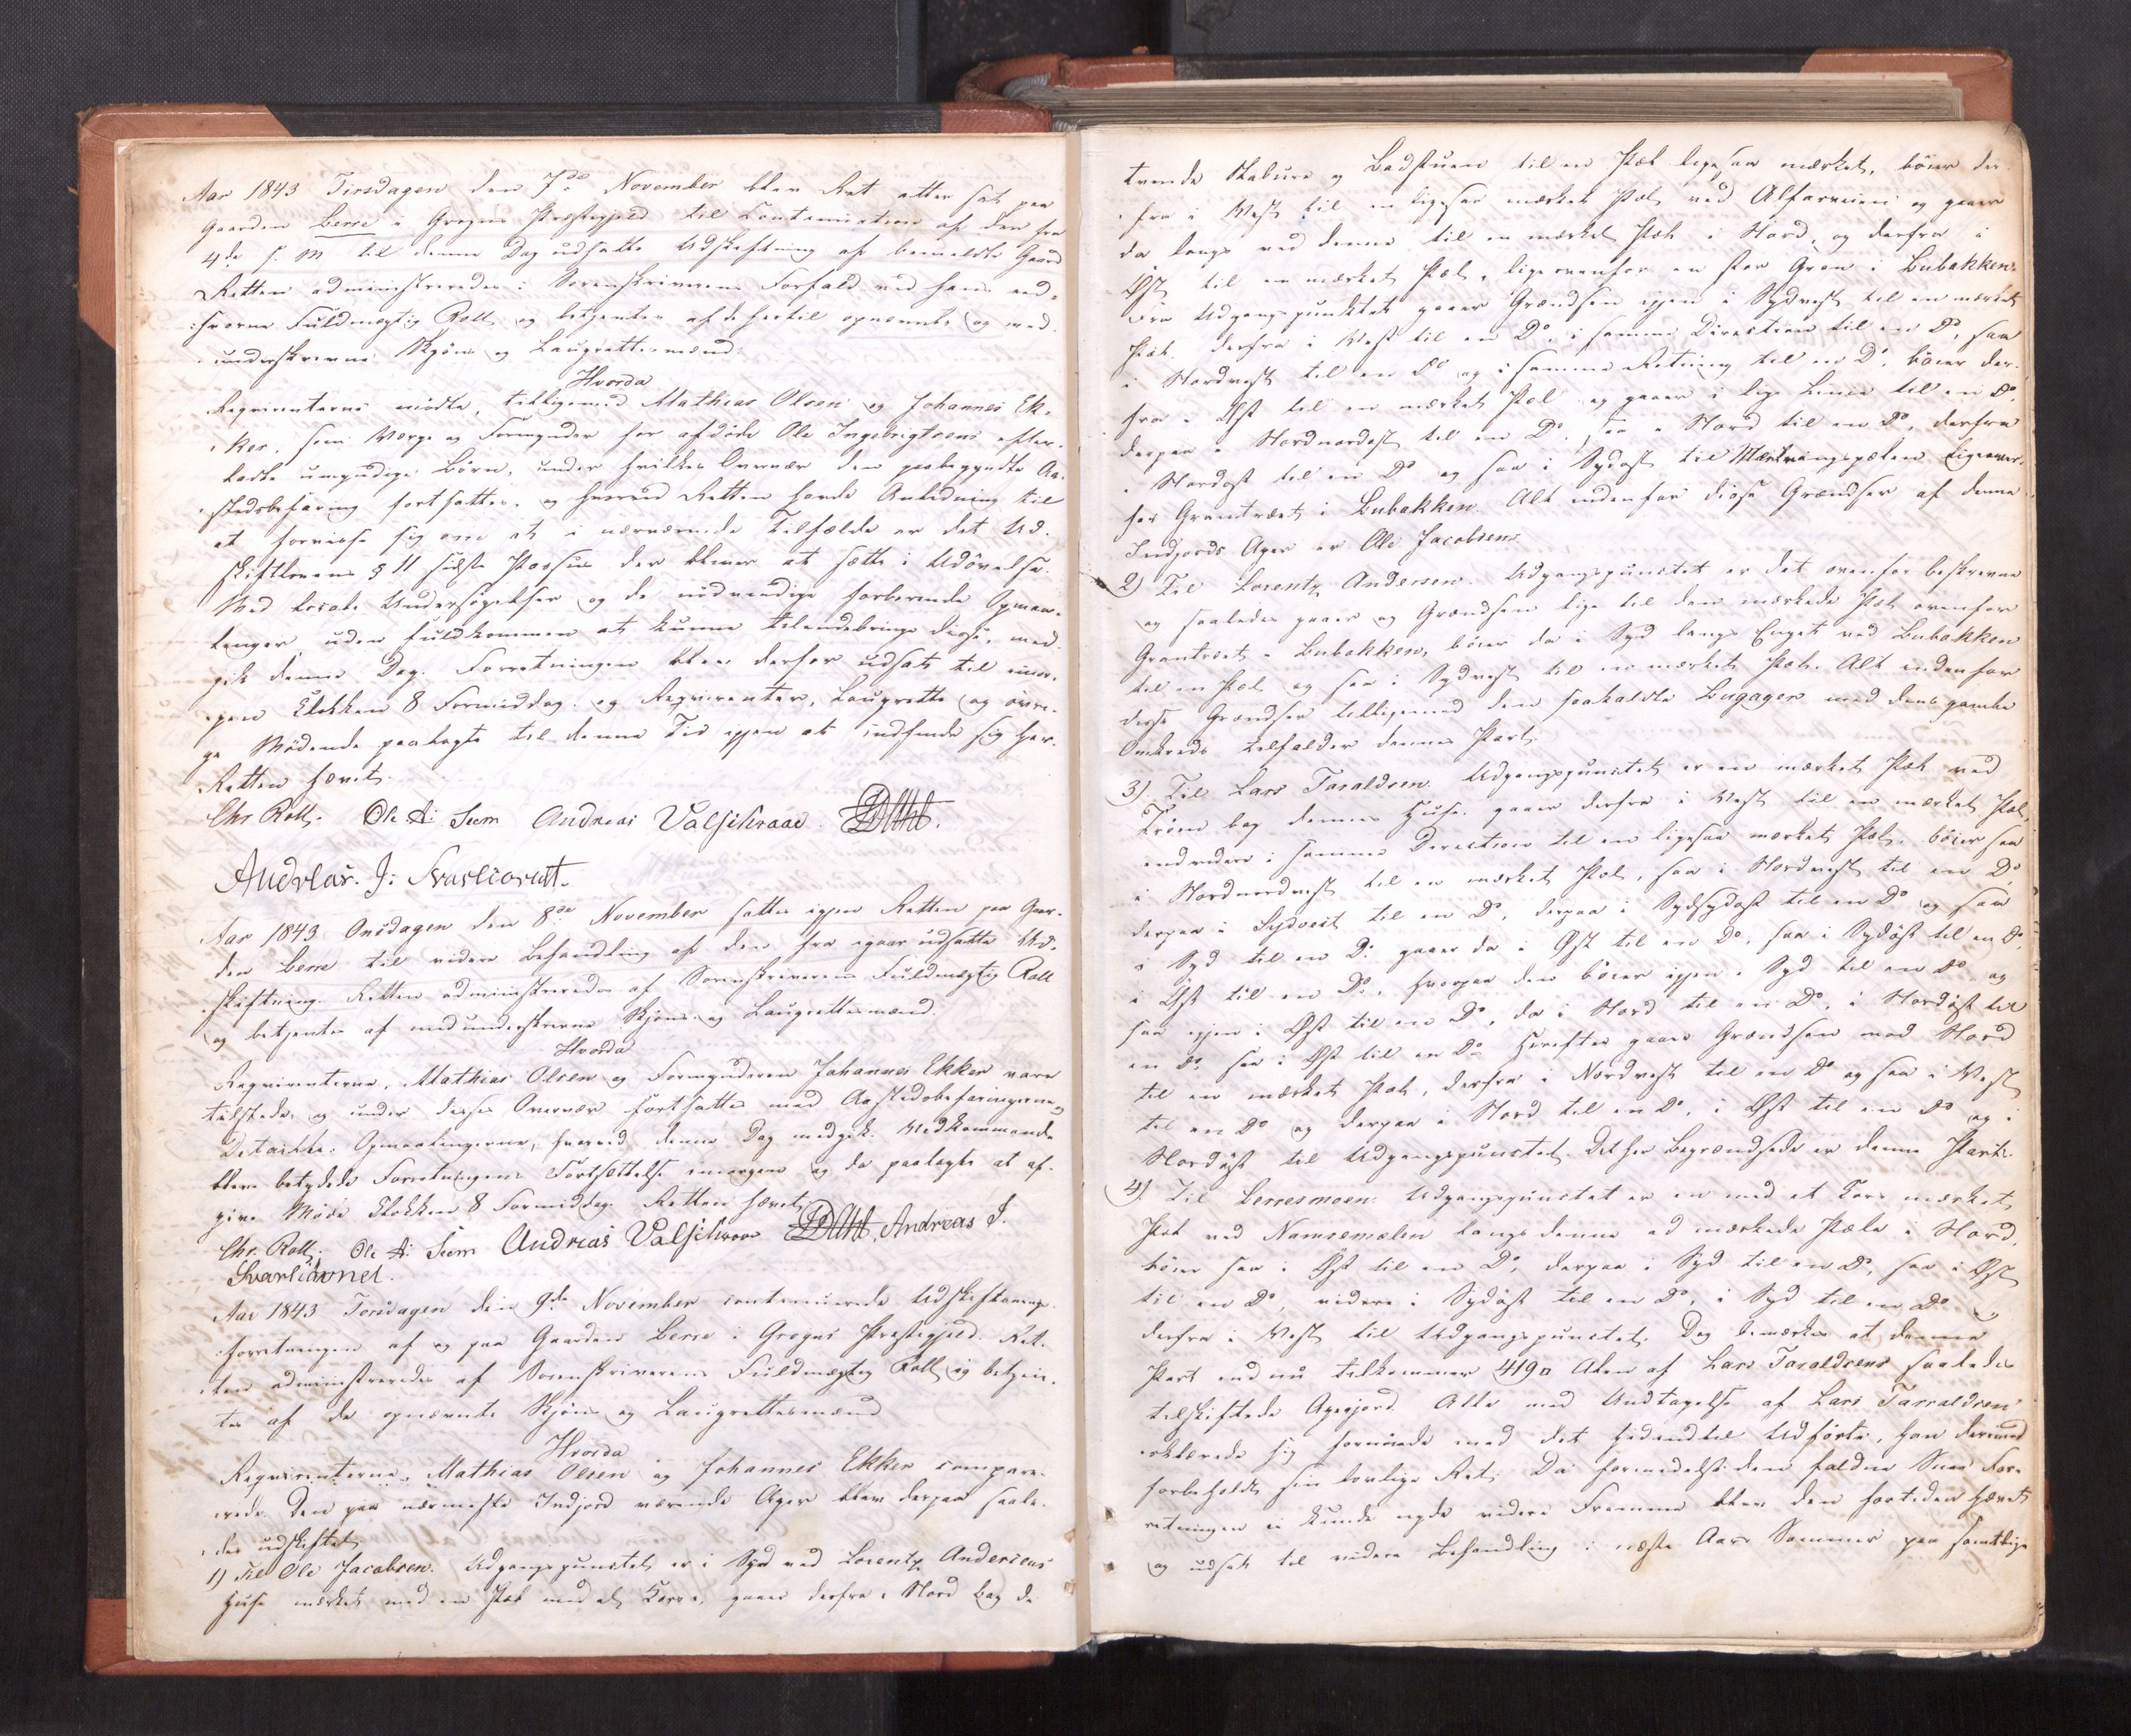 Aar 1843 Tirsdagen den 7de November blev Ret atter sat paa
Gaarden Berre i Grogns Præstegjeld til Continuation af den fra
4de f. M til denne Dag udsatte Udskiftning af bemeldte Gaard
Retten administreredes i Sorenskriverens Forfald ved hans ed¬
svorne Fuldmægtig Roll og betjentes af de hertil opnævnte og med¬
underskrevne Skjøns og Laugrettesmænd.
Hvorda
Reqvirenterne mødte, tilligemed Mathias Olsen og Johannes Ek¬
ker, som Værge og Formynder for afdøde Ole Ingebrigtsens efter¬
ladte umyndige Børn, under hvilkes Overvær den paabegyndte Aa¬
stedsbefaring fortsattes, og hvorved Retten havde Anledning til
at forvisse sig om at i nærværende Tilfælde er det Ud¬
skiftlovens § 11 sidste Passus der bliver at sætte i Udøvelse.
Med locale Undersøgelser og de nødvendige forberende Opmaa¬
linger, uden fuldkommen at kunne tilendebringe disse, med¬
gik denne Dag. Forretningen blev derfor udsat til imor¬
gen Klokken 8 Formiddag og Reqvirenter, Laugrette og øvri¬
ge Mødende paalagte til denne Tid igjen at indfinde sig her.
Retten hævet.
Chr Roll. Ole A: Seem Andreas Valskraae
Andreas. J: Svarliaunet.
Aar 1843 Onsdagen den 8de November sattes igjen Retten paa Gaar¬
den Berre til videre Behandling af den fra igaar udsatte Ud¬
skiftning. Retten administreredes af Sorenskriverens Fuldmægtig Roll
og betjentes af medunderskrevne Skjøns og Laugrettesmænd.
Hvorda
Reqvirenterne, Mathias Olsen og Formynderen Johannes Ekker vare
tilstede, og under disses Overvær fortsattes med Aastedsbefaringerne,
Detaille: Opmaalingerne, hvorved denne Dag medgik. Vedkommende
bleve betydede Forretningens Fortsættelse imorgen og da paalagte at af¬
give Møde Klokken 8 Formiddag. Retten hævet.
Chr. Roll. Ole A: Seem Andreas Valskraae Andreas J.
Svarliaunet.
Aar 1843 Torsdagen den 9de November continuerede Udskiftnings¬
forretningen af og paa Gaarden Berre i Grogns Præstegjeld. Ret¬
ten administreredes af Sorenskriverens Fuldmægtig Roll og betjen¬
tes af de opnævnte Skjøns og Laugrettesmænd
Hvorda
Reqvirenterne, Mathias Olsen og Johannes Ekker compare¬
rede. Den paa nærmeste Indjord værende Ager blev derpaa saale¬
des udskiftet.
1) Til Ole Jacobsen. Udgangspunctet er i Syd ved Lorentz Andersens
Huse mærket med en Pæl med et Kors, gaaer derfra i Nord bag de
tvende Stabure og Badstuen til en Pæl ligesaa mærket, bøier der¬
fra i Vest til en ligesaa mærket Pæl ved Alfarveien og gaaer
da langs ved denne til en mærket Pæl i Nord, og derfra i
Øst til en mærket Pæl, lige ovenfor en stor Gran i Bubakken.
Fra Udgangspunktet gaaer Grændsen igjen i Sydvest til en mærket
Pæl derfra i Vest til en Do, i samme Direction til en Do, saa
i Nordvest til en Do og i samme Retning til en Do, bøier der¬
fra i Øst til en mærket Pæl og gaaer i lige Linie til en Do
derpaa i Nordnordost til en Do, saa i Nord til en Do, derfra
i Nordost til en Do og saa i Sydost til Mærkningspælen ligeoven¬
for Grantræet i Bubakken. Alt indenfor disse Grændser af denne
Indjords Ager er Ole Jacobsens
2) Til Lorentz Andersen. Udgangspunctet er det ovenfor beskrevne
og saaledes gaaer og Grændsen lige til den mærkede Pæl ovenfor
Grantræet i Bubakken, bøier da i Syd langs Enget ved Bubakken
til en Pæl og saa i Sydvest til en mærket Pæl. Alt indenfor
disse Grændser tilligemed den saakaldte Bugager med dens gamle
Omkreds tilfalder denne Part.
3) Til Lars Taraldsen. Udgangspunctet er en mærket Pæl ved
bag dennes Huse, gaaer derfra i Vest til en mærket Pæl,
endvidere i samme Direction til en ligesaa mærket Pæl, bøier saa
i Nordnordvest til en mærket Pæl, saa i Nordvest til en Do,
derpaa i Sydvest til en Do, derpaa i Sydsydost til en Do og saa
i Syd til en Do gaaer da i Øst til en Do, saa i Sydøst til en Do,
i Øst til en Do, hvorpaa den bøier igjen i Syd til en Do og
saa igjen i Øst til en Do, da i Nord til en Do, i Nordøst til
en Do saa i Øst til en Do Herefter gaaer Grændsen mod Nord
til en mærket Pæl, derfra i Nordvest til en Do og saa i Vest
til en Do og derpaa i Nord til en Do, i Øst til en Do og i
Nordøst til Udgangspunctet. Det her Begrændsede er denne Parts.
4) Til Berresmoen. Udgangspunctet er en med et Kors mærket
Pæl ved Namsemælen langs denne ad mærkede Pæle i Nord,
bøier saa i Øst til en Do, derpaa i Syd til en Do, saa i Øst
til en Do, videre i Sydøst til en Do, i Syd til en Do og
derfra i Vest til Udgangspunctet. Dog bemærkes at denne
Part endnu tilkommer 419□ Alen af Lars Taraldsens saaledes
tilskiftede Agerjord. Alle med Undtagelse af Lars Taraldsen
erklærede sig fornøiede med det hidindtil Udførte, han derimod
forbeholdt sin lovlige Ret. Da formedelst den faldne Snee For¬
retningen ei kunde nyde videre Fremme blev den fortiden hævet
og udsat til videre Behandling i næste Aars Sommer paa samtlige